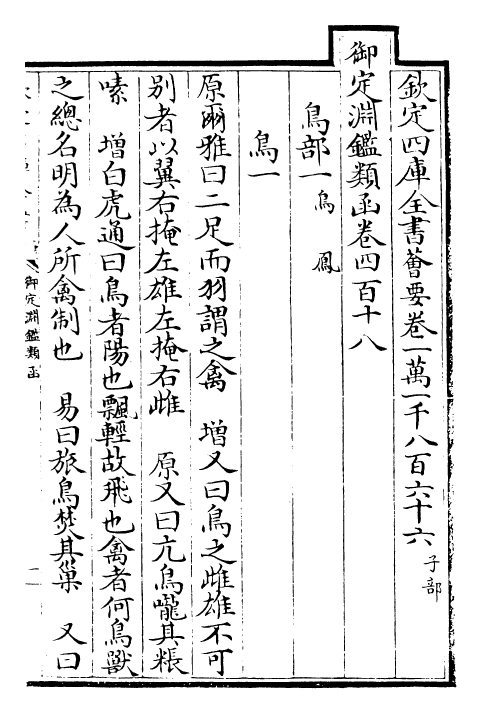 欽定四庫全書薈要卷一萬一千八百六十六 子部
御定淵鑑類函卷四百十八
鳥部一 鳥 鳳
鳥一
原爾雅曰二足而羽謂之禽 增又曰鳥之雌雄不可
别者以翼右掩左雄左掩右雌 原又曰亢鳥嚨其粻
嗉 增白虎通曰鳥者陽也飄輕故飛也禽者何鳥獸
之總名明為人所禽制也 易曰旅鳥焚其巢 又曰
御定淵鑑類函
一